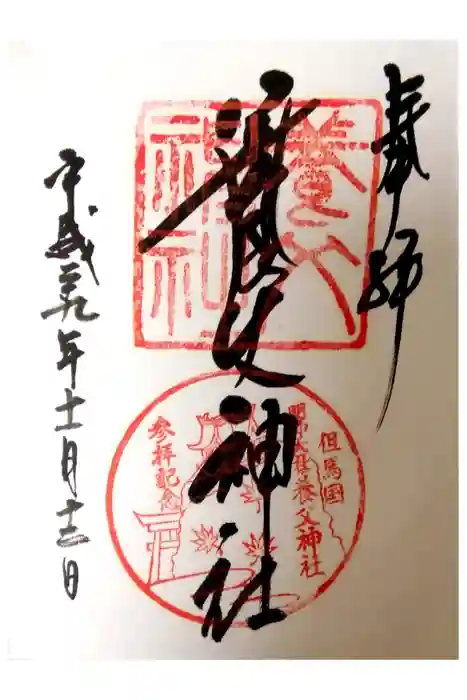 奉拝
養父神社
平成二九年十一月十三日
養父
神社
但馬国
養父神社
参拝記念